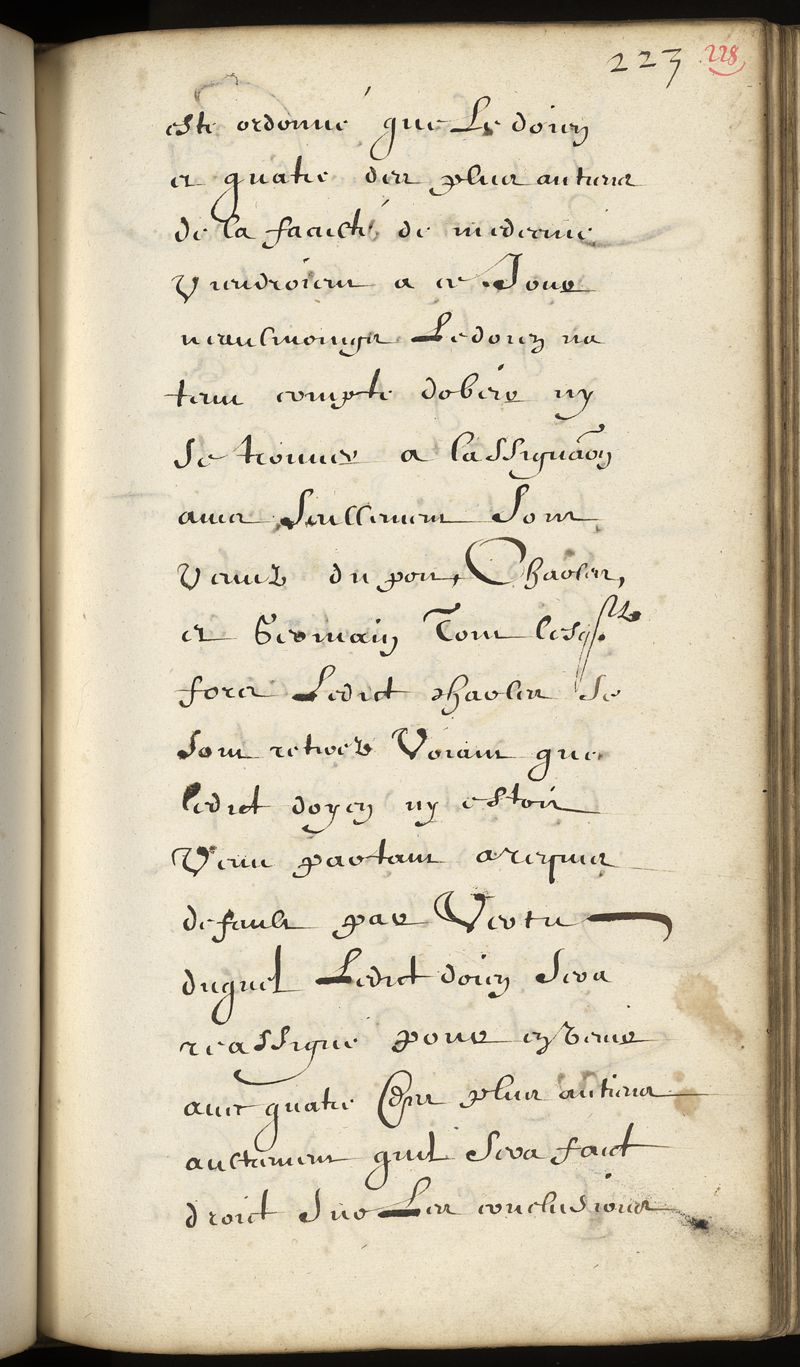 223 228
esté ordonné que Le doien
et quatre des plus antiens
de la faculté de medecine
Viendroient a ce Jour
neaulmoings Le doien na
tenu compte dobeir ny
se trouver a lassignaōn
Seullement Sont
Venuz du pont, Charles,
et Germain Tous lesqlz
fors Ledict charles se
sont retirez Voiant que
ledict doyen ny estoit
Venu partant a requis
default par Vertu
duquel Ledict doien Sera
reassigné pour y venir
avec quatre des plus antiens
aultrement quil Sera faict
droict Sur Les conclusions